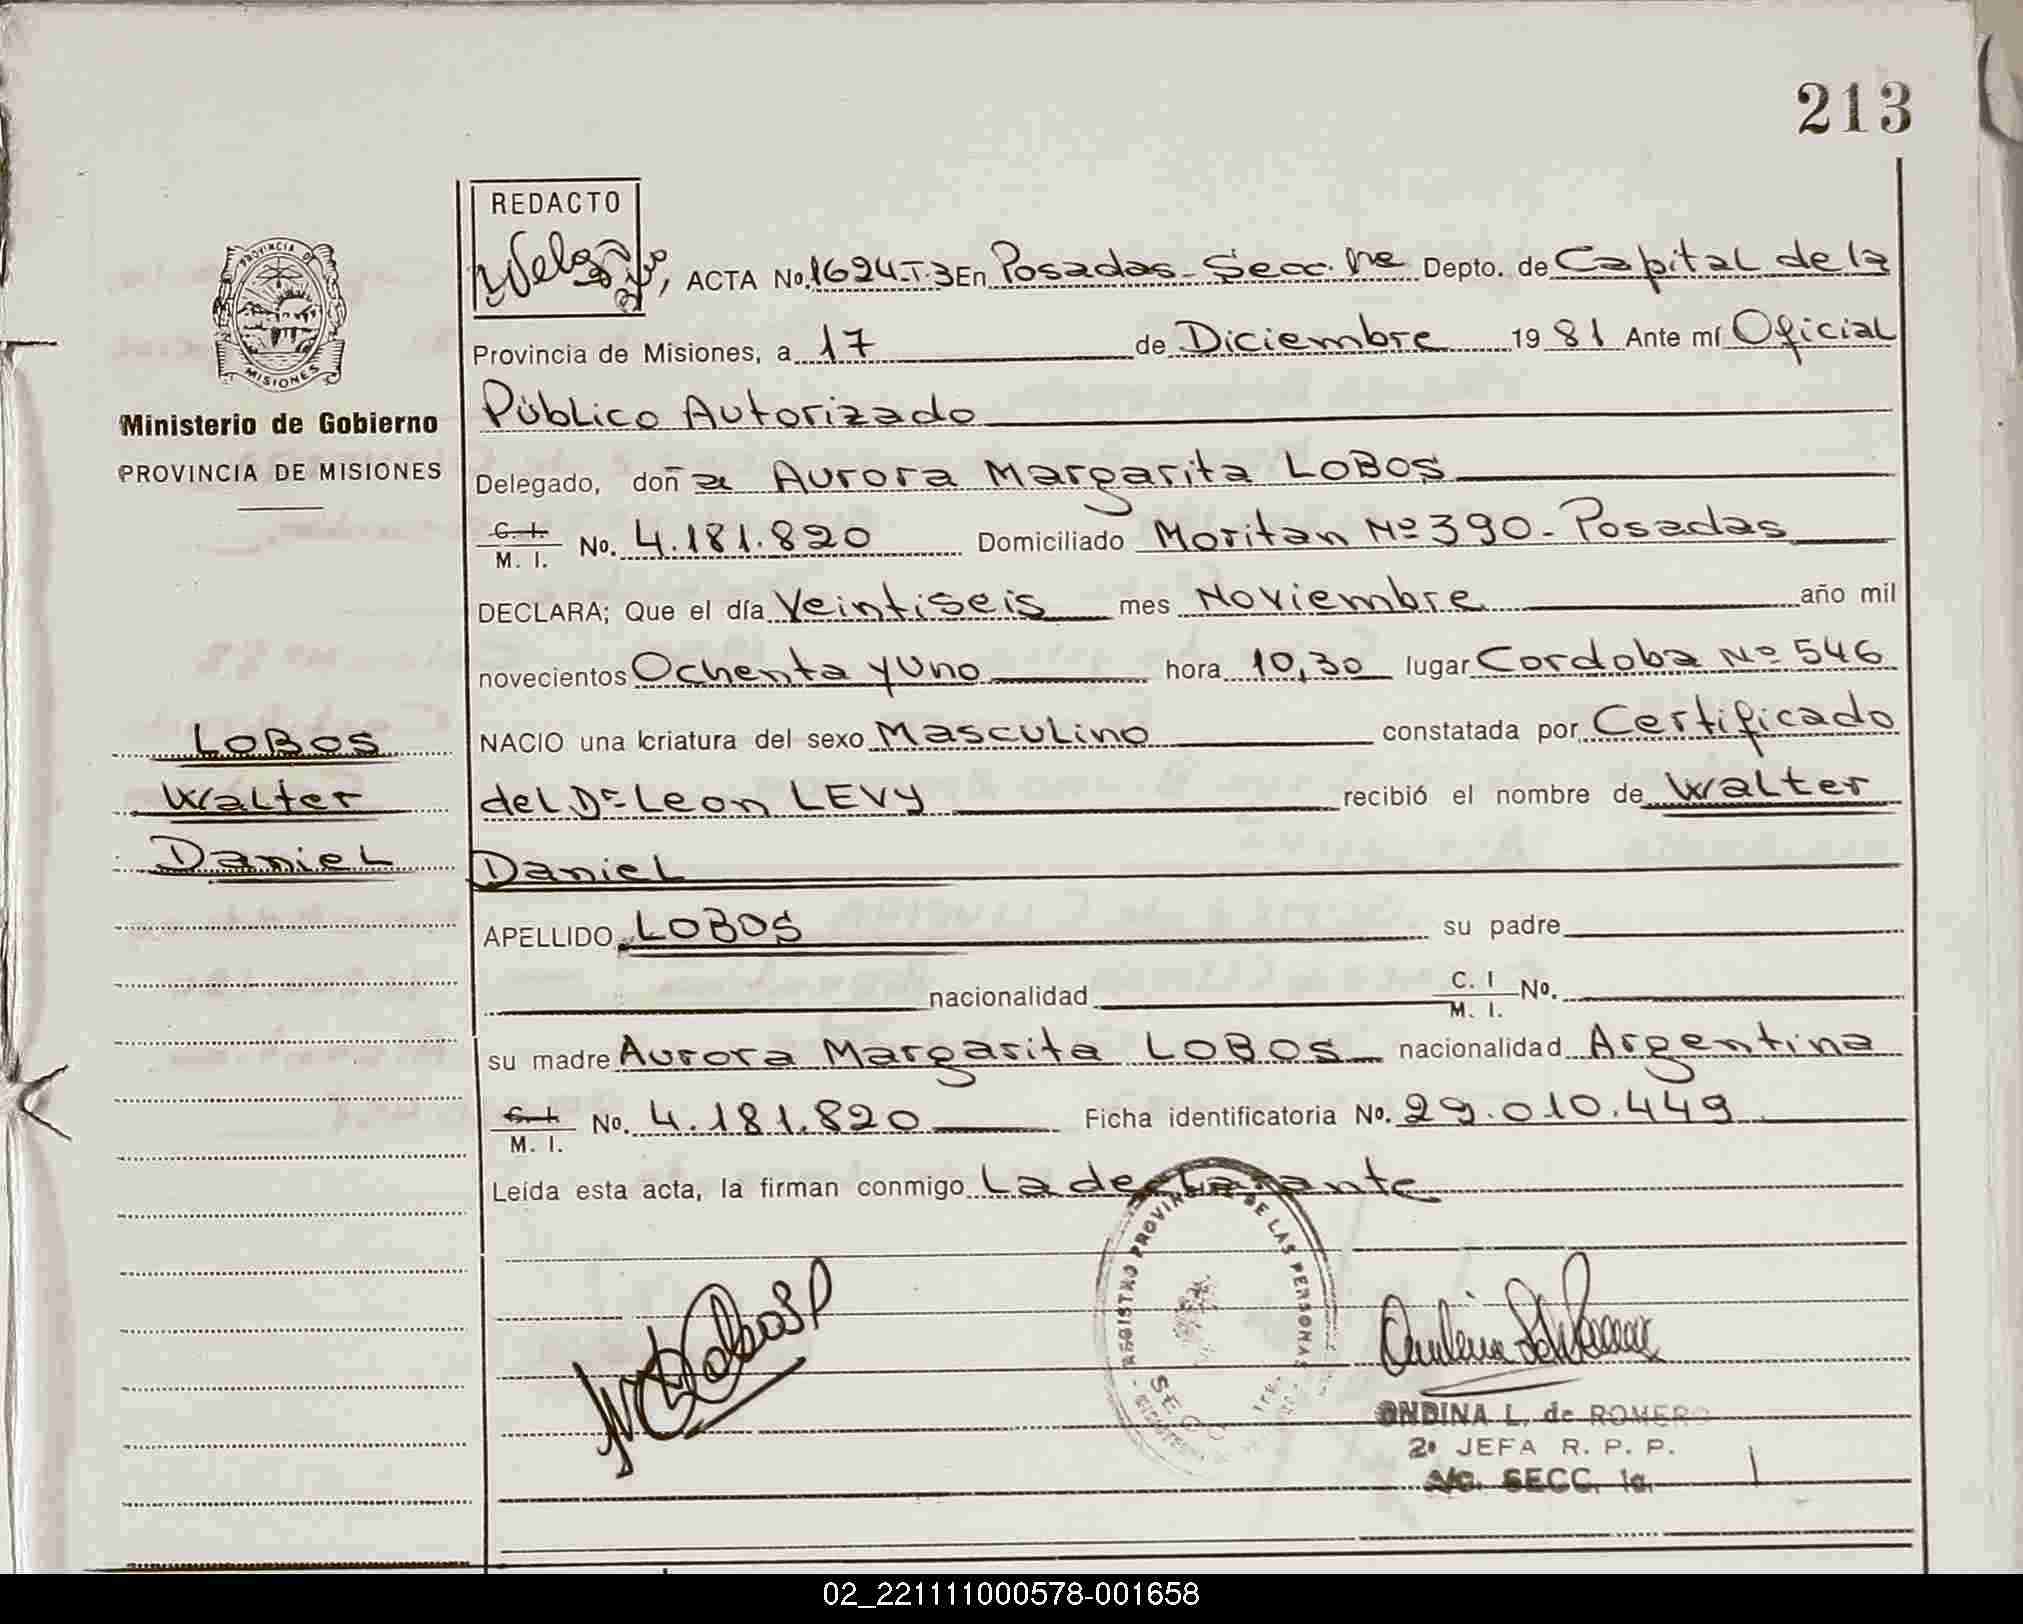 213
REDACTO
ACTA No. 1624-T.3 En Posadas - Secc. 1ra Depto. de Capital de la
Provincia de Misiones, a 17 de Diciembre 1981 Ante mí Oficial
Público Autorizado
Delegado, doña Aurora Margarita LOBOS
C. I. M. I. No. 4.181.820 Domiciliado Moritan Nº 390 - Posadas
DECLARA; Que el día Veintiseis mes Noviembre año mil
novecientos Ochenta y Uno hora 10,30 lugar Cordoba Nº 546
NACIO una criatura del sexo Masculino constatada por Certificado
del Dr Leon LEVY recibió el nombre de Walter
Daniel
APELLIDO LOBOS su padre
nacionalidad C. I M. I. No.
su madre Aurora Margarita LOBOS nacionalidad Argentina
C. I M. I. No. 4.181.820 Ficha identificatoria No. 29.010.449
Leída esta acta, la firman conmigo La declarante
PROVINCIA DE
MISIONES
Ministerio de Gobierno
PROVINCIA DE MISIONES
LOBOS
Walter
Daniel
REGISTRO PROVINCIAL DE LAS PERSONAS
ONDINA L. de ROMERO
2ª JEFA R. P. P.
A/C. SECC. 1a.
02_221111000578-001658